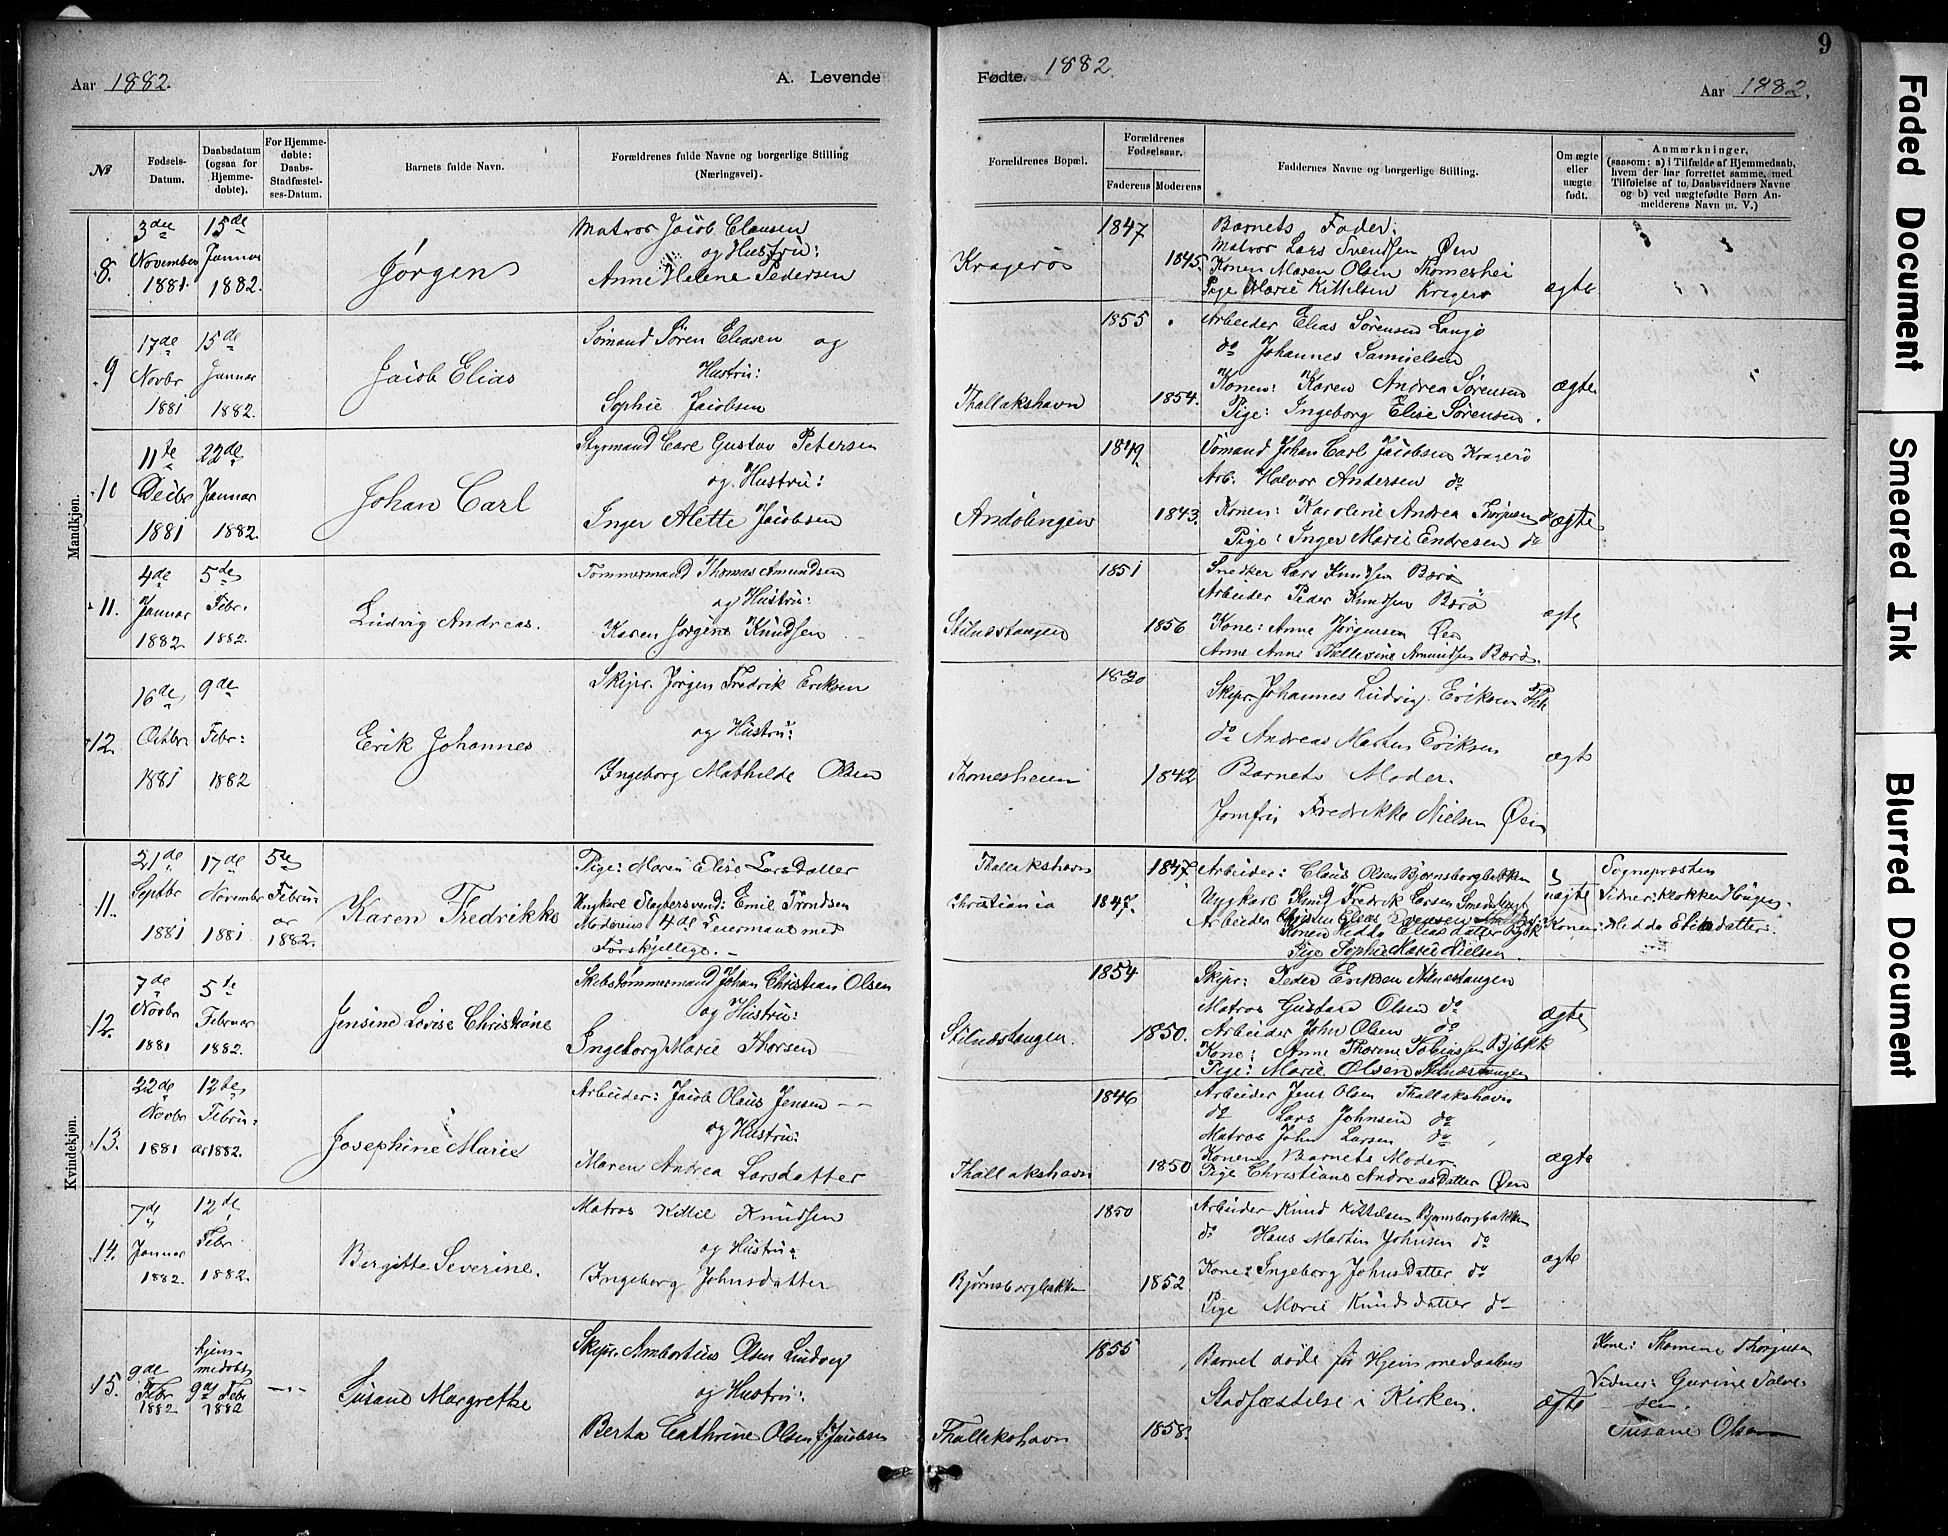 9
Aar 1882.
A. Levende
Fødte. 1882.
Aar 1882.
№
Fødsels-Datum.
Daabsdatum (ogsaa for Hjemme-døbte).
For Hjemme-døbte: Daabs-Stadfæstel-ses-Datum.
Barnets fulde Navn.
Forældrenes fulde Navne og borgerlige Stilling (Næringsvei).
Forældrenes Bopæl.
Forældrenes Fødselsaar.
Faderens
Moderens
Faddernes Navne og borgerlige Stilling.
Om ægte eller uægte født.
Anmærkninger.
(saasom: a) i Tilfælde af Hjemmedaab,
hvem der har forrettet samme, med
Tilføielse af to Daabsvidners Navne
og b) ved uægtefødte Børn An-
melderens Navn m. V.)
Mandkjøn.
8.
3die November 1881.
15de Januar 1882.
Jørgen
Matros Jacob Clausen
og Hustru:
Anne Helene Pedersen
Kragerø
1847
1845.
Barnets Fader.
Matros Lars Svendsen Øen
Konen Maren Olsen Thomeshei
Pige Marie Kittelsen Kragerø
ægte
9
17de Novbr 1881
15de Januar 1882.
Jacob Elias
Sømand Søren Eliasen og
Hustru:
Sophie Jacobsen
Thallakshavn
1855
1854.
Arbeider Elias Sørensen Langø
do Johannes Samuelsen
Konen: Karen Andrea Sørensen
Pige: Ingeborg Elise Sørensen.
ægte
10
11te Decbr 1881
22de Januar 1882.
Johan Carl
Styrmand Carl Gustav Petersen
og Hustru:
Inger Alette Jacobsen
1849.
1843.
Sømand Johan Carl Jacobsen Kragerø
Arb. Halvor Andersen do
Konen: Karoline Andrea Thorjusen do
Pige: Inger Marie Endresen do
ægte
11.
4de Januar 1882
5de Febr. 1882.
Ludvig Andreas.
Tømmermand Thomas Amundsen
og Hustru:
Karen Jørgine Knudsen
Stilnestangen
1851
1856
Snedker Lars Knudsen Bærø
Arbeider Peder Knudsen Bærø
Kone: Anne Jørgensen Øen
Anne Thellevine Amundsen Bærø.
ægte
12.
16de Octbr 1881
9de Febr: 1882
Erik Johannes
Skipr. Jørgen Fredrik Eriksen
og Hustru:
Ingeborg Mathilde Olsen
Thomesheien
1842
Skipr. Johannes Ludvig Eriksen
do Andreas Martin Eriksen
Barnets Moder.
Jomfru Fredrikke Nielsen Øen
ægte
Kvindekjøn.
11.
21de Septbr 1881
17de November 1881
5te Februar 1882.
Karen Fredrikke
Pige: Maren Elise Larsdatter
Ungkarl Slagtersvend: Emil Trondsen
Moderens 4de Leiermaal med
Forskjellige.
Thallakshavn
Christiania
1847.
1847.
Arbeider: Claus Olsen Bjørnsborgbakken
Ungkarl Knud Fredrik Larsen
Arbeider Elias
Konen Hedda Eliasdatter
Pige Sophie Marie Nielsen.
uægte
Sognepræsten
Vidner: klokker
Konen: Hedda Eliasdatter
12.
7de Novbr 1881
5te Februar 1882.
Jensine Lovise Christiane
Skibstømmermand Johan Christian Olsen
og Hustru:
Ingeborg Marie Thorsen
Stilnestangen.
1854
1850.
Skipr: Peder Eriksen Stilnestangen
Matros Gustav Olsen do
Arbeider John Olsen do
Kone: Anne Thorine Tobiassen Bjbkk
Pige: Marie Olsen Stilnestangen
ægte
13.
22de Novbr 1881
12te Februar 1882.
Josephine Marie
Arbeider: Jacob Olaus Jensen
og Hustru:
Maren Andrea Larsdatter
Thallakshavn
1846
1850
Arbeider Jens Olsen Thallakshavn
do Lars Johnsen do
Matros John Larsen do
Konen Barnets Moder
Pige Christiane Andreasdatter Øen
ægte
14.
7de Januar 1882.
12de Febr 1882.
Birgitte Severine.
Matros Kittil Knudsen
og Hustru:
Ingeborg Johnsdatter
Bjørnsborgbakken
1850
1852
Arbeider Knud Kittilsen Bjørnsborgbakken
do Hans Martin Johnsen do
Kone: Ingeborg Johnsdatter do
Pige Marie Knudsdatter do
ægte
15.
9de Febr 1882
hjemmedøbt 9de Febr 1882
Susane Margrethe
Skipr. Ambortius Olsen Ludvig
og Hustru:
Berta Cathrine Olsen f. Jacobsen
Thallakshavn
1855
1858.
Barnet døde før Hjemmedaabens
Stadfæstelse i Kirken.
ægte
Kone: Thomine Thorjusen
Vidner: Gurine Salve-
sen.
Susane Olsen
Faded Document
Smeared Ink
Blurred Document